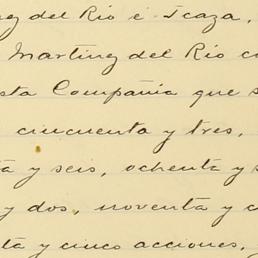 del Río é Icaza,
Martinez del Río
esta Compañia que
cincuenta y tres,
y seis, ochenta y
y dos, noventa y
y cinco acciones,